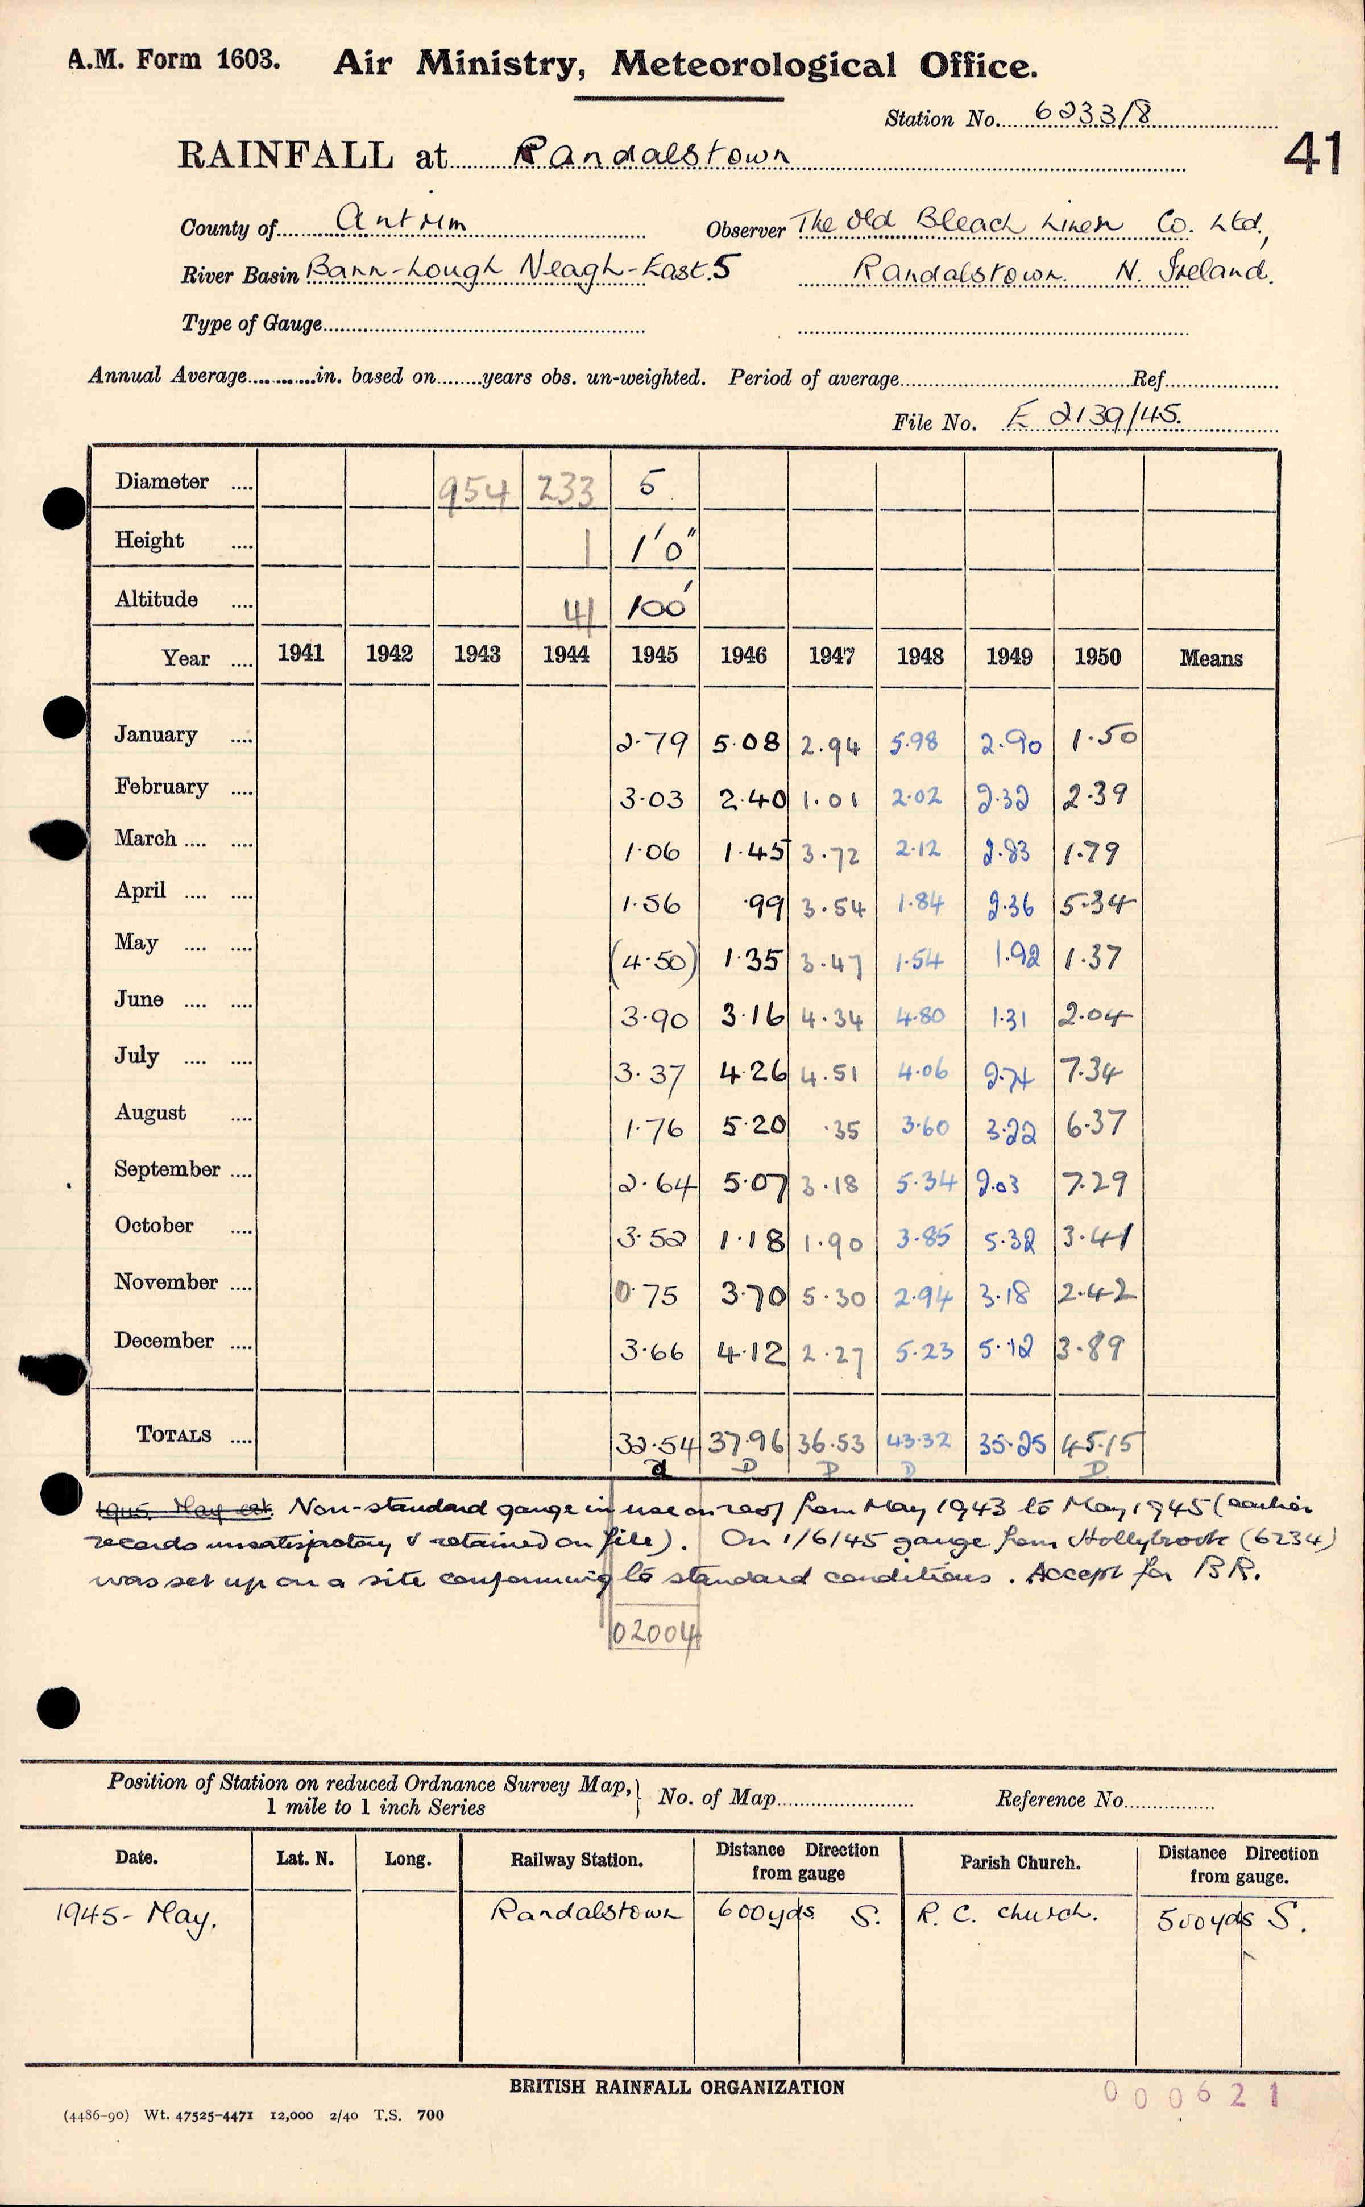 A.M. Form 1603. Air Ministry, Meteorological Office.
Station No. 6233/8
RAINFALL at Randalstown 41
County of Antrim Observer The Old Bleach Linen Co. Ltd.,
River Basin Bann-Lough Neagh-East.5 Randalstown N. Ireland.
Type of Gauge
Annual Average in. based on years obs. un-weighted. Period of average Ref
File No. E 2139/45.
Diameter 954 233 5
Height 1 1'0"
Altitude 41 100'
Year 1941 1942 1943 1944 1945 1946 1947 1948 1949 1950 Means
January 2.79 5.08 2.94 5.98 2.90 1.50
February 3.03 2.40 1.01 2.02 2.32 2.39
March 1.06 1.45 3.72 2.12 2.83 1.79
April 1.56 .99 3.54 1.84 2.36 5.34
May (4.50) 1.35 3.47 1.54 1.92 1.37
June 3.90 3.16 4.34 4.80 1.31 2.04
July 3.37 4.26 4.51 4.06 2.74 7.34
August 1.76 5.20 .35 3.60 3.22 6.37
September 2.64 5.07 3.18 5.34 2.03 7.29
October 3.52 1.18 1.90 3.85 5.32 3.41
November 0.75 3.70 5.30 2.94 3.18 2.42
December 3.66 4.12 2.27 5.23 5.12 3.89
TOTALS 32.54 37.96 36.53 43.32 35.25 45.15
D D D D
1945 May est. Non-standard gauge in use on roof from May 1943 to May 1945 (earlier
records unsatisfactory & retained on file). On 1/6/45 gauge from Hollybrook (6234)
was set up on a site conforming to standard conditions. Accept for B.R.
02004
Position of Station on reduced Ordnance Survey Map, 1 mile to 1 inch Series No. of Map Reference No
Date. Lat. N. Long. Railway Station. Distance Direction from gauge Parish Church. Distance Direction from gauge.
1945- May. Randalstown 600yds S. R. C. Church. 500yds S.
BRITISH RAINFALL ORGANIZATION
000621
(4486-90) Wt. 47525-4471 12,000 2/40 T.S. 700